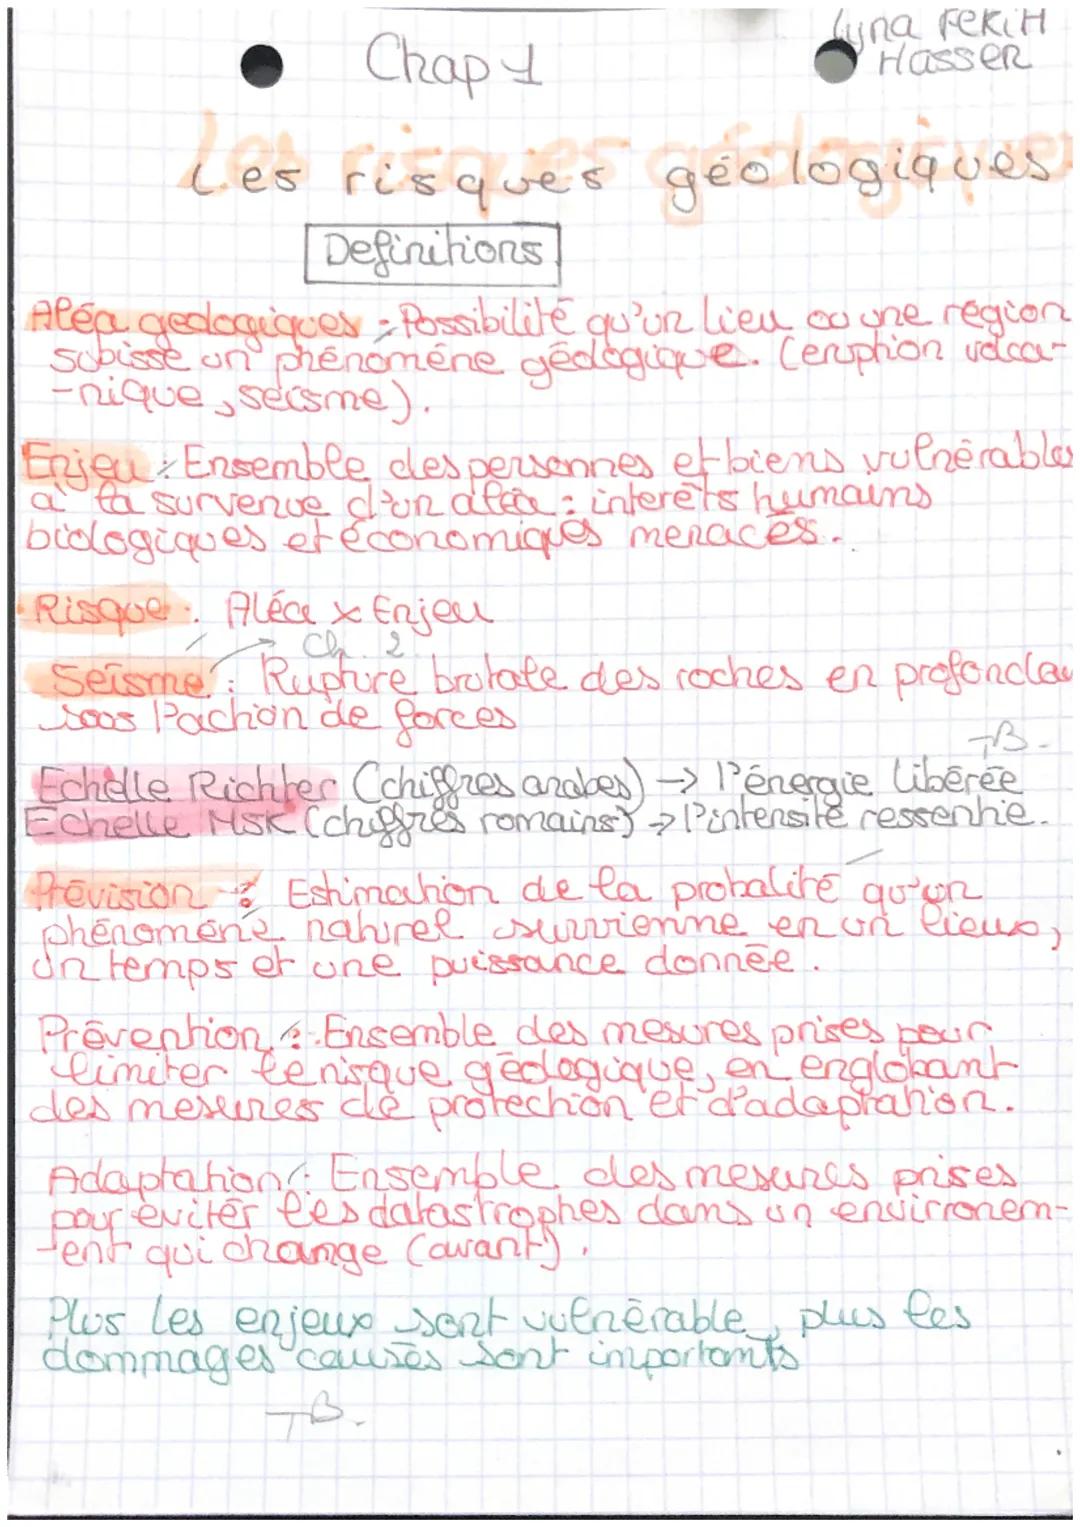 Lyna FEKiH
Hasser
Chap 1
Les risques géologiques
Définitions
Aléa geologiques : Possibilité qu'un lieu ou une région
subisse un phénomène géologique. (eruption volca-
-nique, seisme).
Enjeu : Ensemble des personnes et biens vulnérables
à la survenue d'un aléa : interêts humains
biologiques et économiques menacés.
Risque : Aléa x Enjeu
Ch. 2
Seïsme : Rupture brutale des roches en profondeu
sous l'action de forces
TB.
Echelle Richter (chiffres arabes) → l'énergie libérée
Echelle MSK (chiffres romains) → l'intensité ressentie.
Prévision : Estimation de la probalité qu'un
phénomène naturel survienne en un lieux,
un temps et une puissance donnée.
Prévention : Ensemble des mesures prises pour
limiter le risque géologique, en englobant
des mesures de protection et d'adaptation.
Adaptation : Ensemble des mesures prises
pour éviter les catastrophes dans un environem-
-ent qui change (avant).
Plus les enjeux sont vulnérable, plus les
dommages causés sont importants
TB.